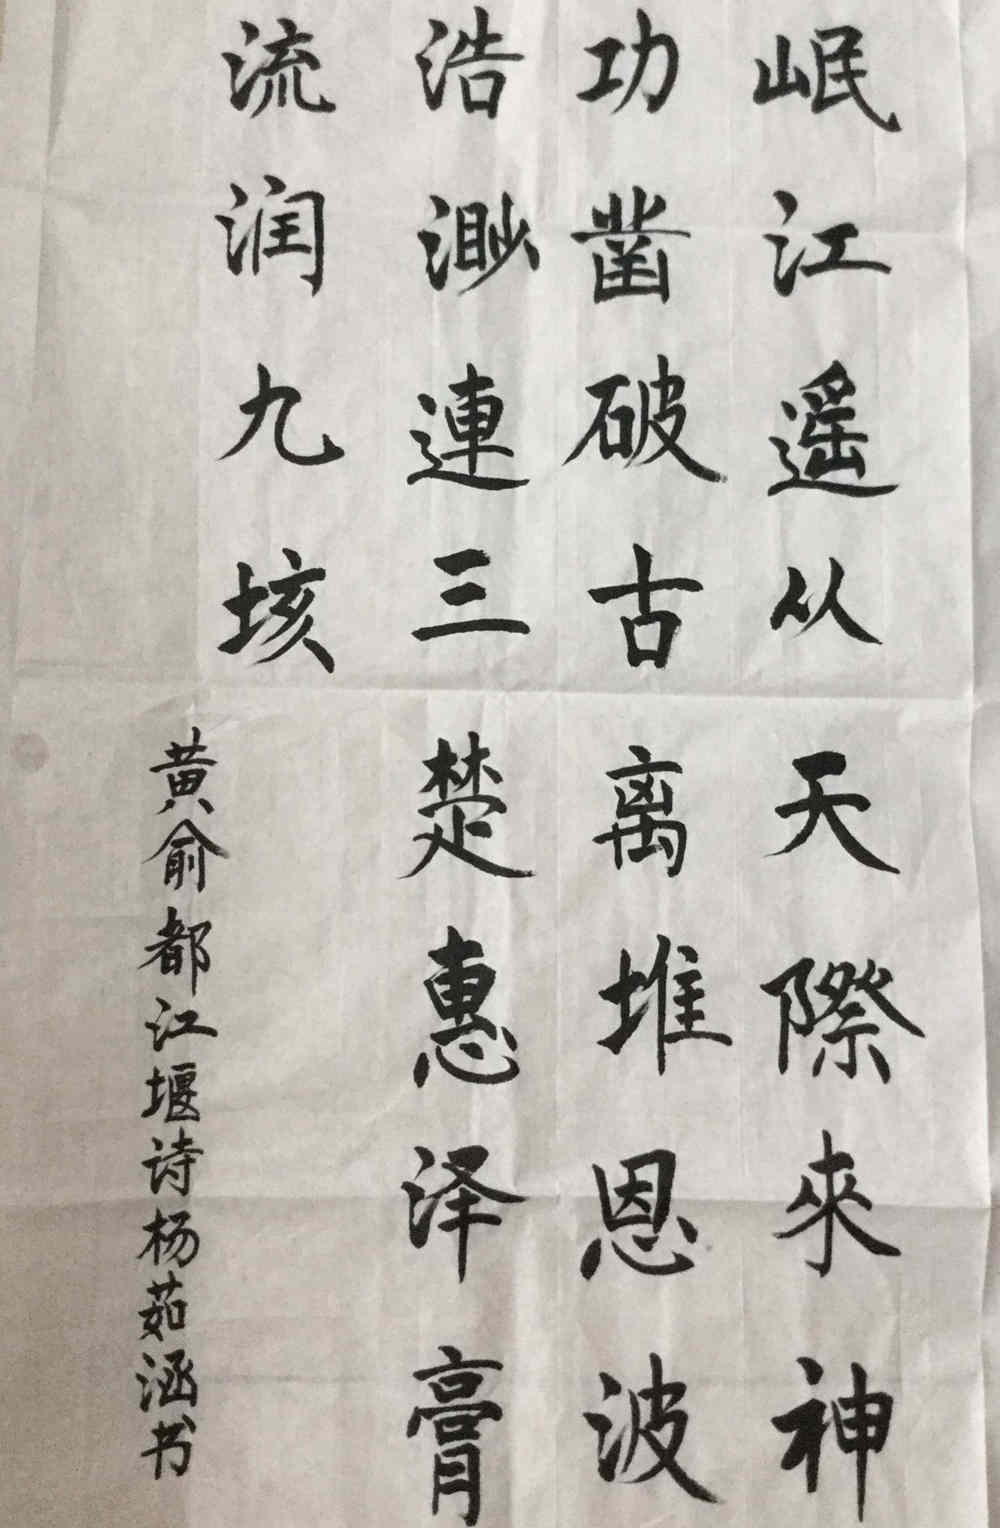 岷江遥从天際來神
功凿破古离堆恩波
浩渺連三楚惠泽膏
流润九垓
黄俞都江堰诗杨茹涵书